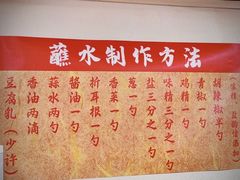 蘸水制作方法
胡辣椒半勺
青椒一勺
鸡精一勺
味精三分之一勺
盐三分之一勺
葱一勺
香菜一勺
折耳根一勺
酱油一勺
蒜水两勺
香油两滴
豆腐乳（少许）